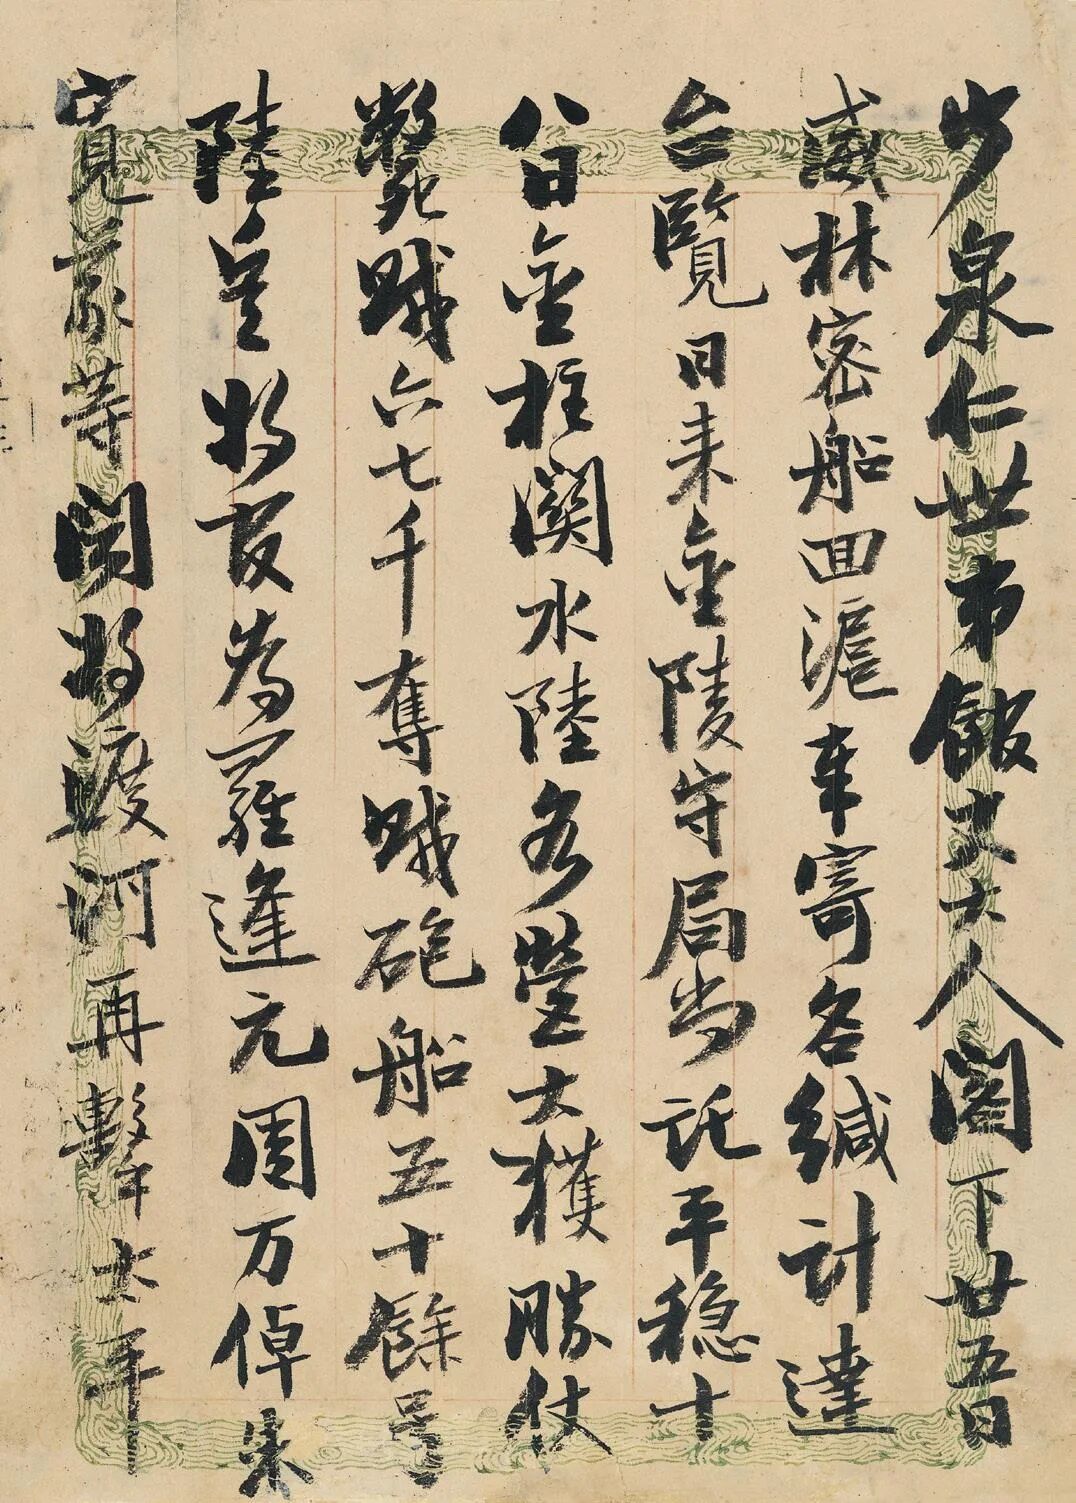 少泉仁世弟館丈大人閣下廿五日
威林密船回滬寄各緘計達
台覽日來金陵守局尚託平穩十
八日金柱關水陸各營大獲勝仗
斃賊六七千奪賊砲船五十餘號
陸兵將領為羅逢元周万倬朱
寬義等聞將渡河再擊太平